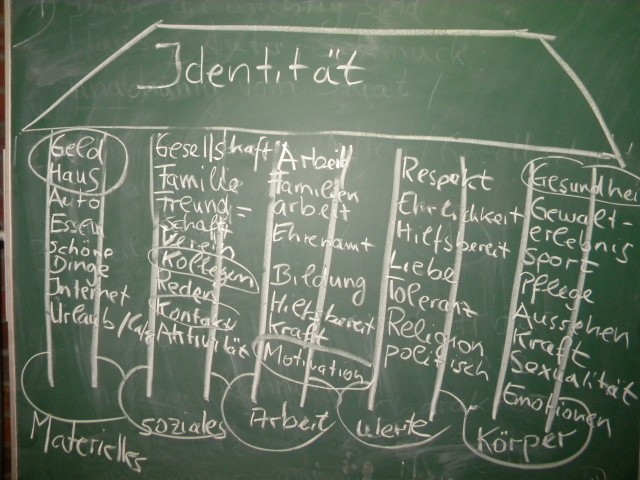 Identität
Geld
Haus
Auto
Essen
schöne
Dinge
Internet
Urlaub/
Materielles
Gesellschaft
Familie
Freund=
schaft
Verein
Kollegen
Reden
Kontakt
Aktivität
soziales
Arbeit
Familien
arbeit
Ehrenamt
Bildung
Hilfsbereit
Kraft
Motivation
Arbeit
Respekt
Ehrlichkeit
Hilfsbereit
Liebe
Toleranz
Religion
politisch
Werte
Gesundhei
Gewalt-
erlebnis
Sport
Pflege
Aussehen
Kraft
Sexualität
Emotionen
Körper